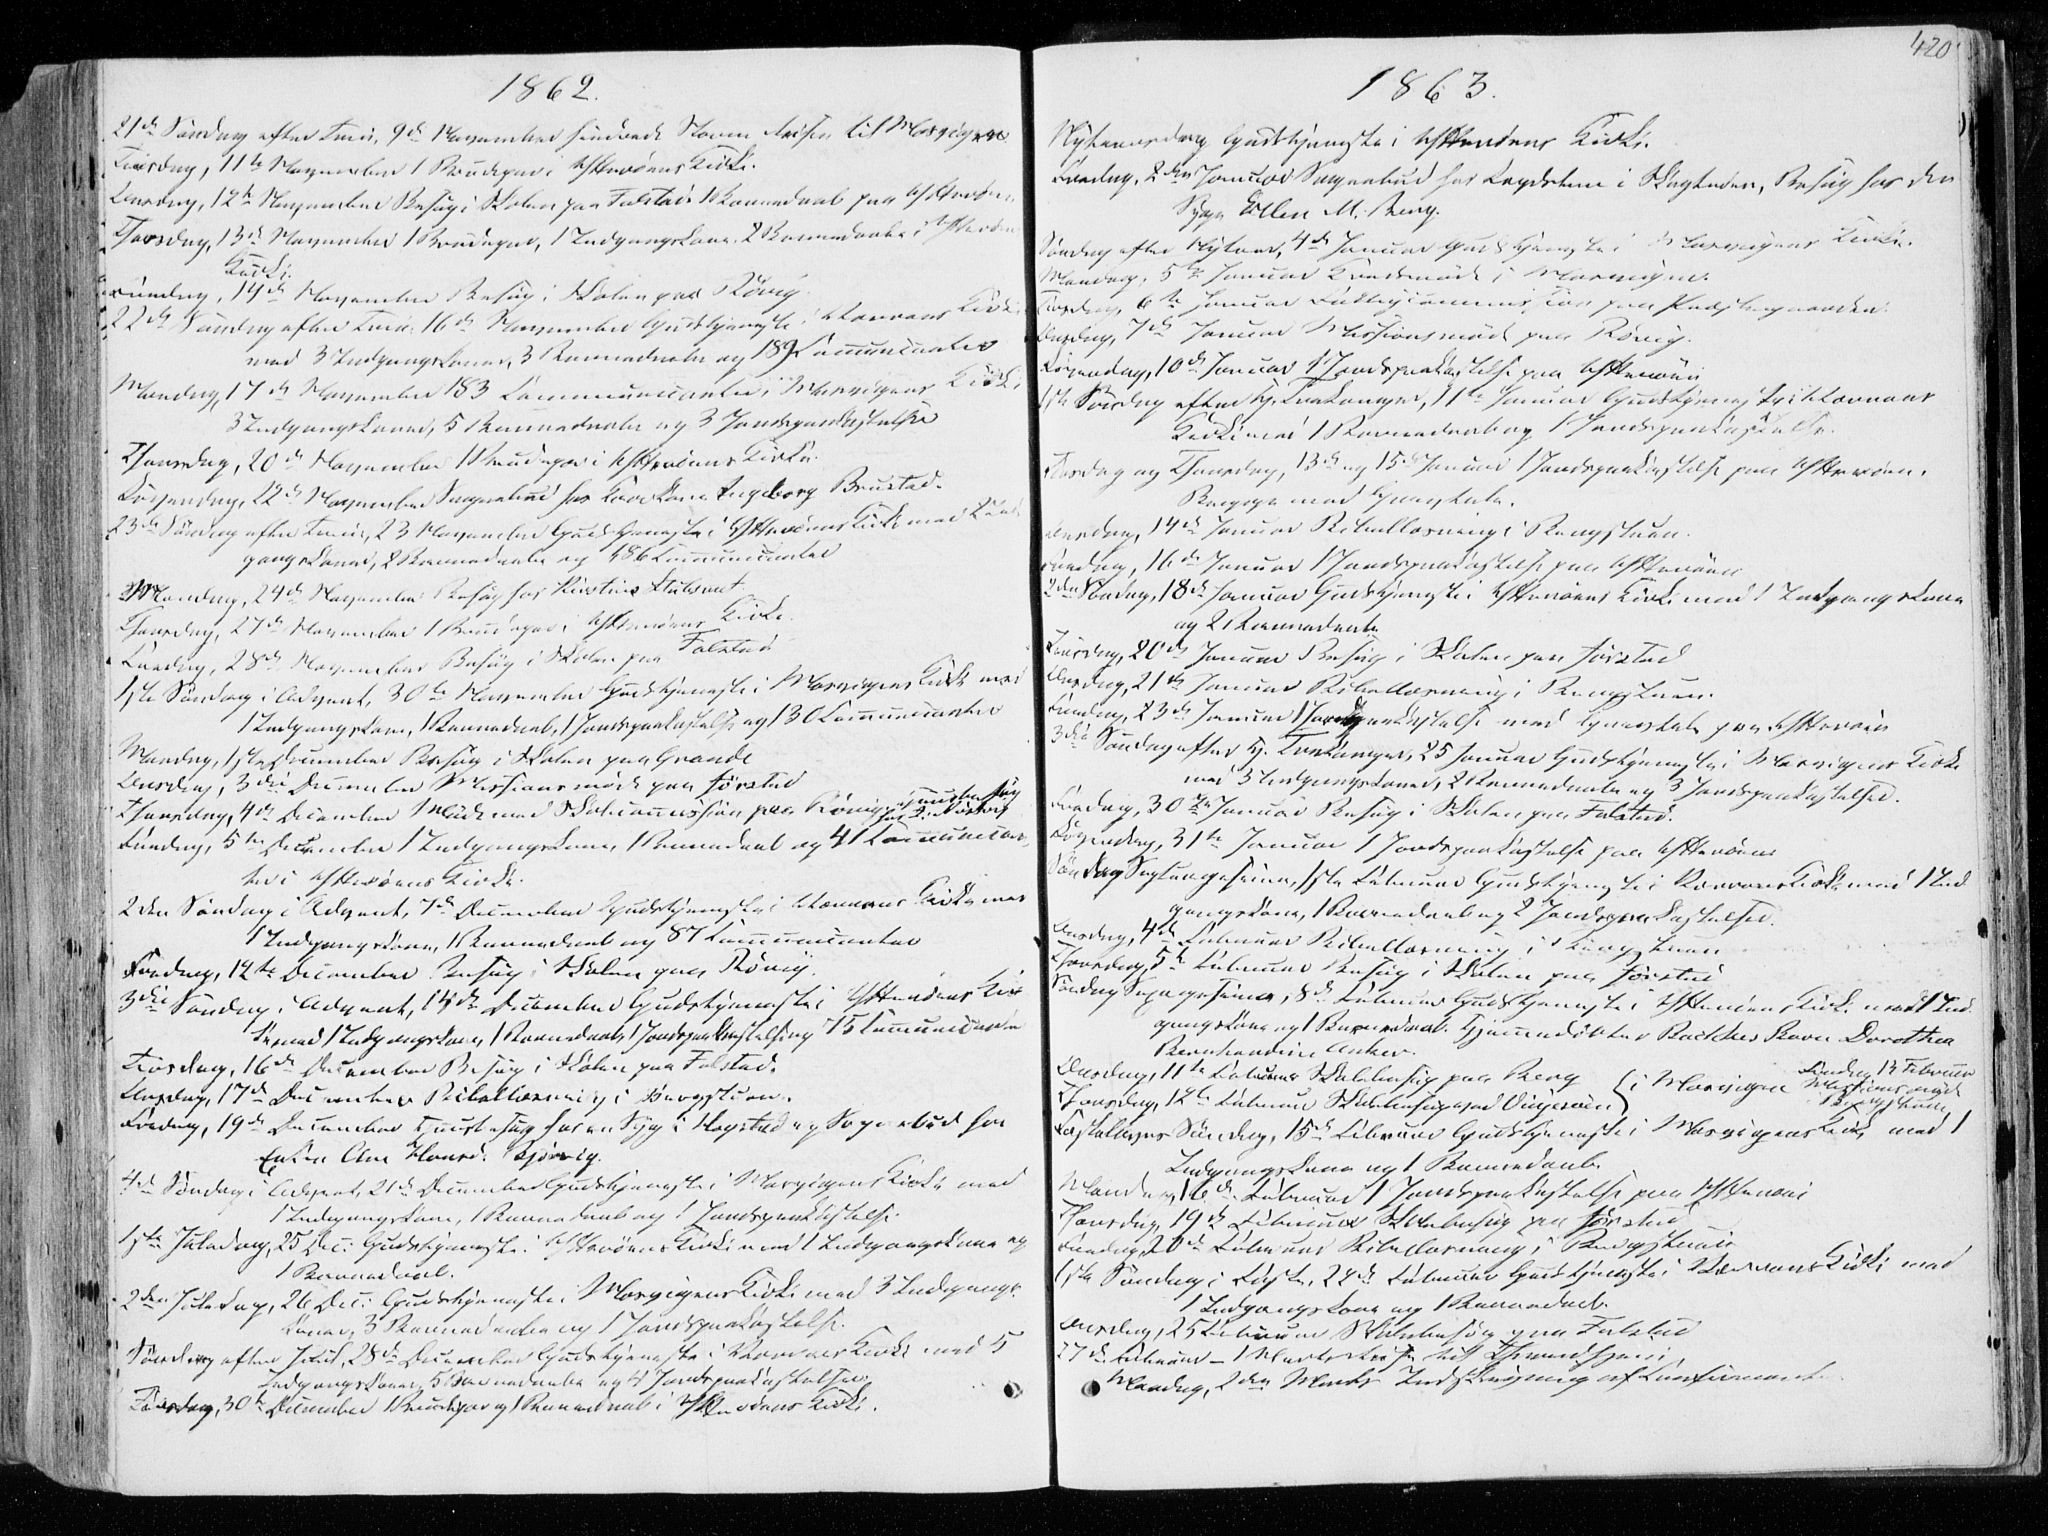 1862.
21de Søndag efter Trin. 9de November hindrede Storm Reisen til Mosvigen
Tirsdag, 11te November 1 Brudepar i Ytterøens Kirke.
Onsdag, 12te November Besøg i Skolen paa Falstad. 1 Barnedaab paa Ytterøen.
Thorsdag, 13de November 1 Brudepar, 1 Indgangskone 2 Barnedaabe i Ytterøens
Kirke.
Fredag, 14de November Besøg i Skolen paa Rövig
22de Søndag efter Trin. 16de November Gudstjeneste i Kirke
med 3 Indgangskoner, 3 Barnedaabe og 189 Communicanter
Mandag, 17de November 183 Communicanter i Mosvigens Kirke
3 Indgangskoner, 5 Barnedaabe og 3 Jordspaakastelse
Thorsdag, 20de November 1 Brudepar i Ytterøens Kirke.
Løverdag, 22de November Sognebud hos Ingeborg Brustad.
23de Søndag efter Trin. 23 November Gudstjeneste i Ytterøens Kirke med 2 Ind
gangskoner, 2 Barnedaabe og 186 Communicanter
Mandag, 24de November Besøg hos Kirstine
Thorsdag, 27de November 1 Brudepar i Ytterøens Kirke.
Fredag, 28de November Besøg i Skolen paa Falstad
1ste Søndag i Advent, 30te November Gudstjeneste i Mosvigens Kirke med
1 Indgangskone, 1 Barnedaab, 1 Jordspaakastelse og 130 Communicanter
Mandag, 1ste December Besøg i Skolen paa Grande
Onsdag, 3die December Missionsmöde paa Jörstad
Thorsdag, 4de December Möde med Skolecommission paa Rövig
Fredag, 5te December 1 Indgangskone, 1 Barnedaab og 41 Communican
ter i Ytterøens Kirke.
2den Søndag i Advent, 7de December Gudstjeneste i Kirke med
1 Indgangskone, 1 Barnedaab og 87 Communicanter
Fredag, 12te December Besøg i Skolen paa Rövig.
3die Søndag i Advent, 14de December Gudstjeneste i Ytterøens Kir
ke med 1 Indgangskone, 1 Barnedaab, 1 Jordspaakastelse og 75 Communicanter
Tirsdag, 16de December Besøg i Skolen paa Falstad.
Onsdag, 17de December Bibellæsning i Borgstuen.
Fredag, 19de December hos en Syg i og Sognebud hos
Enken Ane Hansd. Bjørvig.
4de Søndag i Advent, 21de December Gudstjeneste i Mosvigens Kirke med
1 Indgangskone, 1 Barnedaab og 1 Jordspaakastelse.
1ste Juledag, 25 Dec. Gudstjeneste i Ytterøens Kirke med 1 Indgangskone og
1 Barnedaab.
2den Juledag, 26 Dec. Gudstjeneste i Mosvigens Kirke med 3 Indgangs
koner, 3 Barnedaabe og 1 Jordspaakastelse.
Søndag efter Juul, 28de December Gudstjeneste i Kirke med 5
Indgangskoner, 5 Barnedaabe og 4 Jordspaakastelser
Tirsdag, 30te December 1 Brudepar og 1 Barnedaab i Ytterøens Kirke.
420
1863.
Nytaarsdag Gudstjeneste i Ytterøens Kirke.
Fredag, 2den Januar Sognebud hos i Besøg hos den
Syge Ellen M. Berg.
Søndag efter Nytaar, 4de Januar Gudstjeneste i Mosvigens Kirke.
Mandag, 5te Januar i Mosvigen.
Tirsdag, 6te Januar Fattigcommission paa Præstegaarden.
Onsdag, 7de Januar Missionsmöde paa Rövig.
Løverdag, 10de Januar 1 Jordspaakastelse paa Ytterøen
1ste Søndag efter Hj. Trekonger, 11te Januar Gudstjeneste i
Kirke med 1 Barnedaab og 1 Jordspaakastelse.
Tirsdag og Thorsdag, 13de og 15de Januar 1 Jordspaakastelse paa Ytterøen.
Begge med Gravtale.
Onsdag, 14de Januar Bibellæsning i Borgstuen.
Fredag, 16de Januar 1 Jordspaakastelse paa Ytterøen
2den Søndag, 18de Januar Gudstjeneste i Ytterøens Kirke med 1 Indgangskone
og 2 Barnedaabe
Tirsdag, 20de Januar Besøg i Skolen paa Jörstad
Onsdag, 21de Januar Bibellæsning i Borgstuen.
Fredag, 23de Januar 1 Jordspaakastelse med Gravtale paa Ytterøen
3die Søndag efter Hj. Trekonger, 25 Januar Gudstjeneste i Mosvigens Kirke
med 3 Indgangskoner, 2 Barnedaabe og 3 Jordspaakastelser.
Fredag, 30te Januar Besøg i Skolen paa Falstad.
Løverdag, 31te Januar 1 Jordspaakastelse paa Ytterøen
Søndag Septuagesima, 1ste Februar Gudstjeneste i Kirke med 1 Ind
gangskone, 1 Barnedaab og 2 Jordspaakastelser.
Onsdag, 4de Februar Bibellæsning i Borgstuen
Thorsdag, 5te Februar Besøg i Skolen paa Jörstad
Søndag Sexagesima, 8de Februar Gudstjeneste i Ytterøens Kirke med 1 Ind
gangskone og 1 Barnedaab. Hjemmedöbtes Barn Dorothea
Bernhardine Anker.
Onsdag, 11te Februar Skolebesøg paa Berg
Thorsdag, 12te Februar Skolebesøg paa
i Mosvigen
Fredag 13 Februar
Missionsmöde
i Borgstuen
Fastelavns Søndag, 15de Februar Gudstjeneste i Mosvigens Kirke med 1
Indgangskone og 1 Barnedaab.
Mandag, 16de Februar 1 Jordspaakastelse paa Ytterøen
Thorsdag, 19de Februar Skolebesøg paa Jörstad
Fredag, 20de Februar Bibellæsning i Borgstuen
1ste Søndag i Faste, 22de Februar Gudstjeneste i Kirke med
1 Indgangskone og 1 Barnedaab.
Onsdag, 25 Februar Skolebesøg paa Falstad
27de Februar – 1 Marts Reise til Throndhjem,
Mandag, 2den Marts Indskrivning af Confirmanter